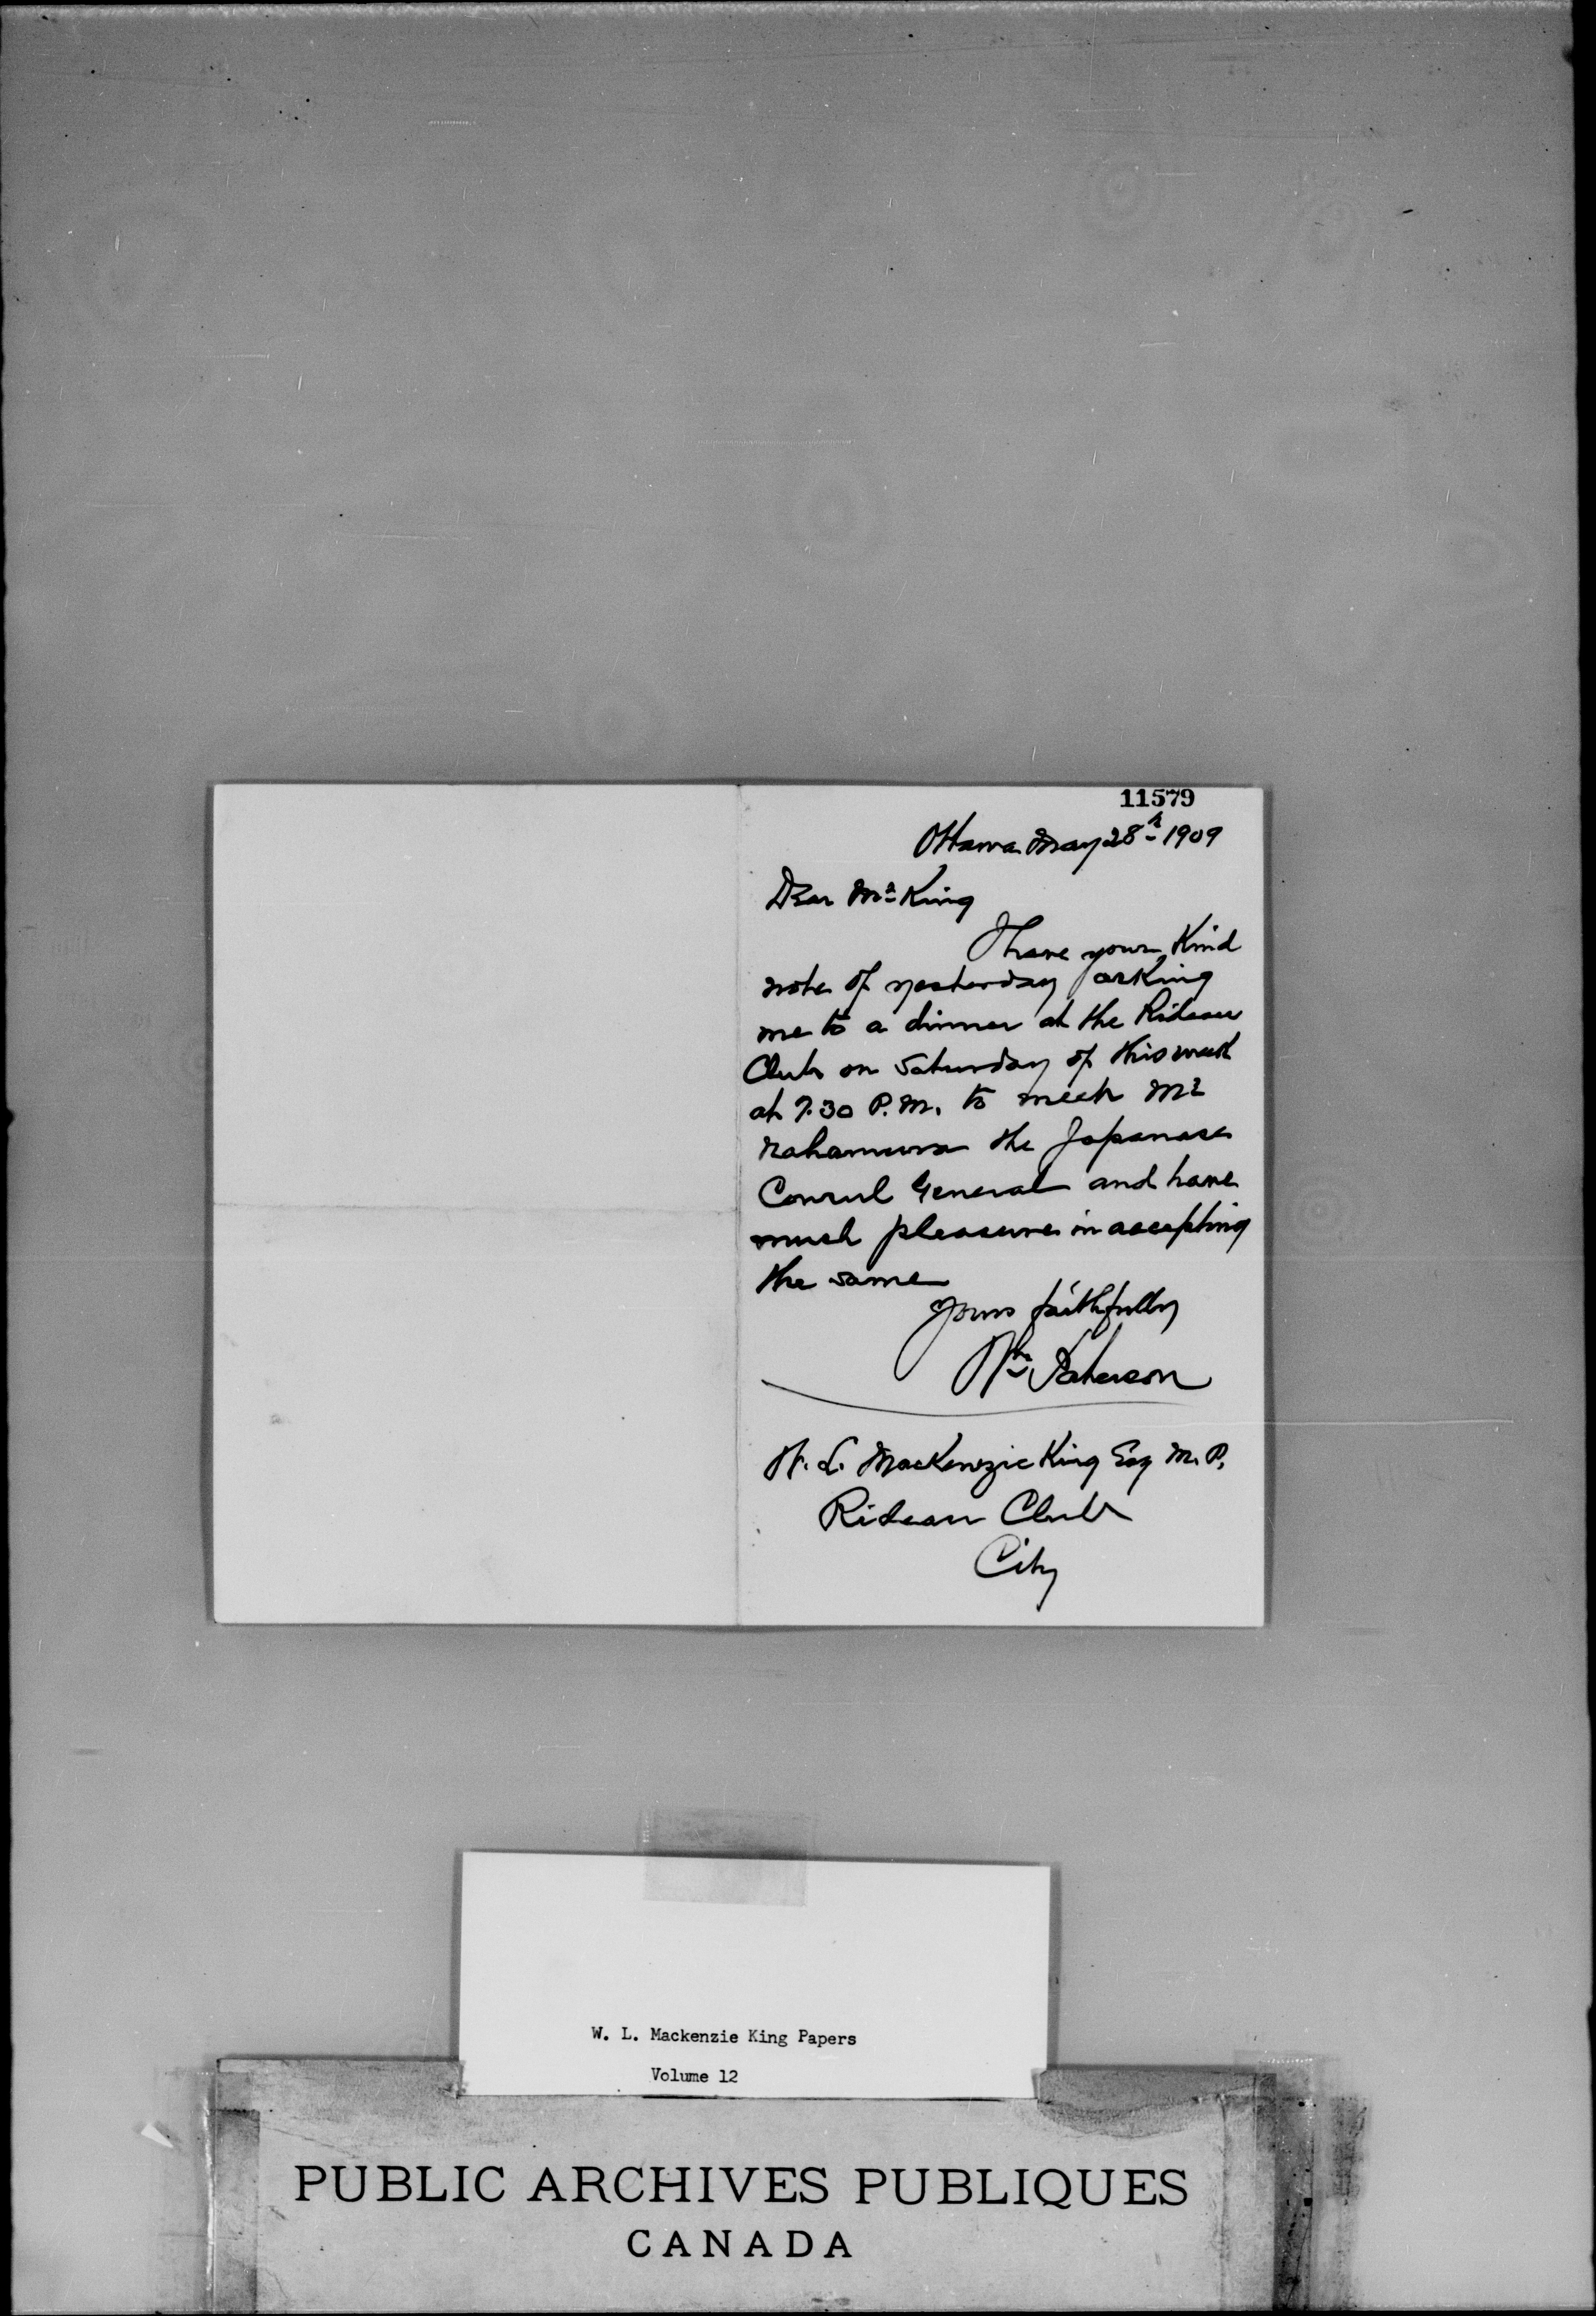 11579
Ottawa May 28th 1909
Dear Mr King
I have your Kind
note of yesterday asking
me to a dinner at the Rideau
Club on Saturday of this week
at 7.30 P.M. to meet Mr
Nakamura the Japanese
Consul General and have
much pleasure in accepting
the same
Yours faithfully
Wm Paterson
W. L. MacKenzie King Esq M.P.
Rideau Club
City
W. L. Mackenzie King Papers
Volume 12
PUBLIC ARCHIVES PUBLIQUES
CANADA